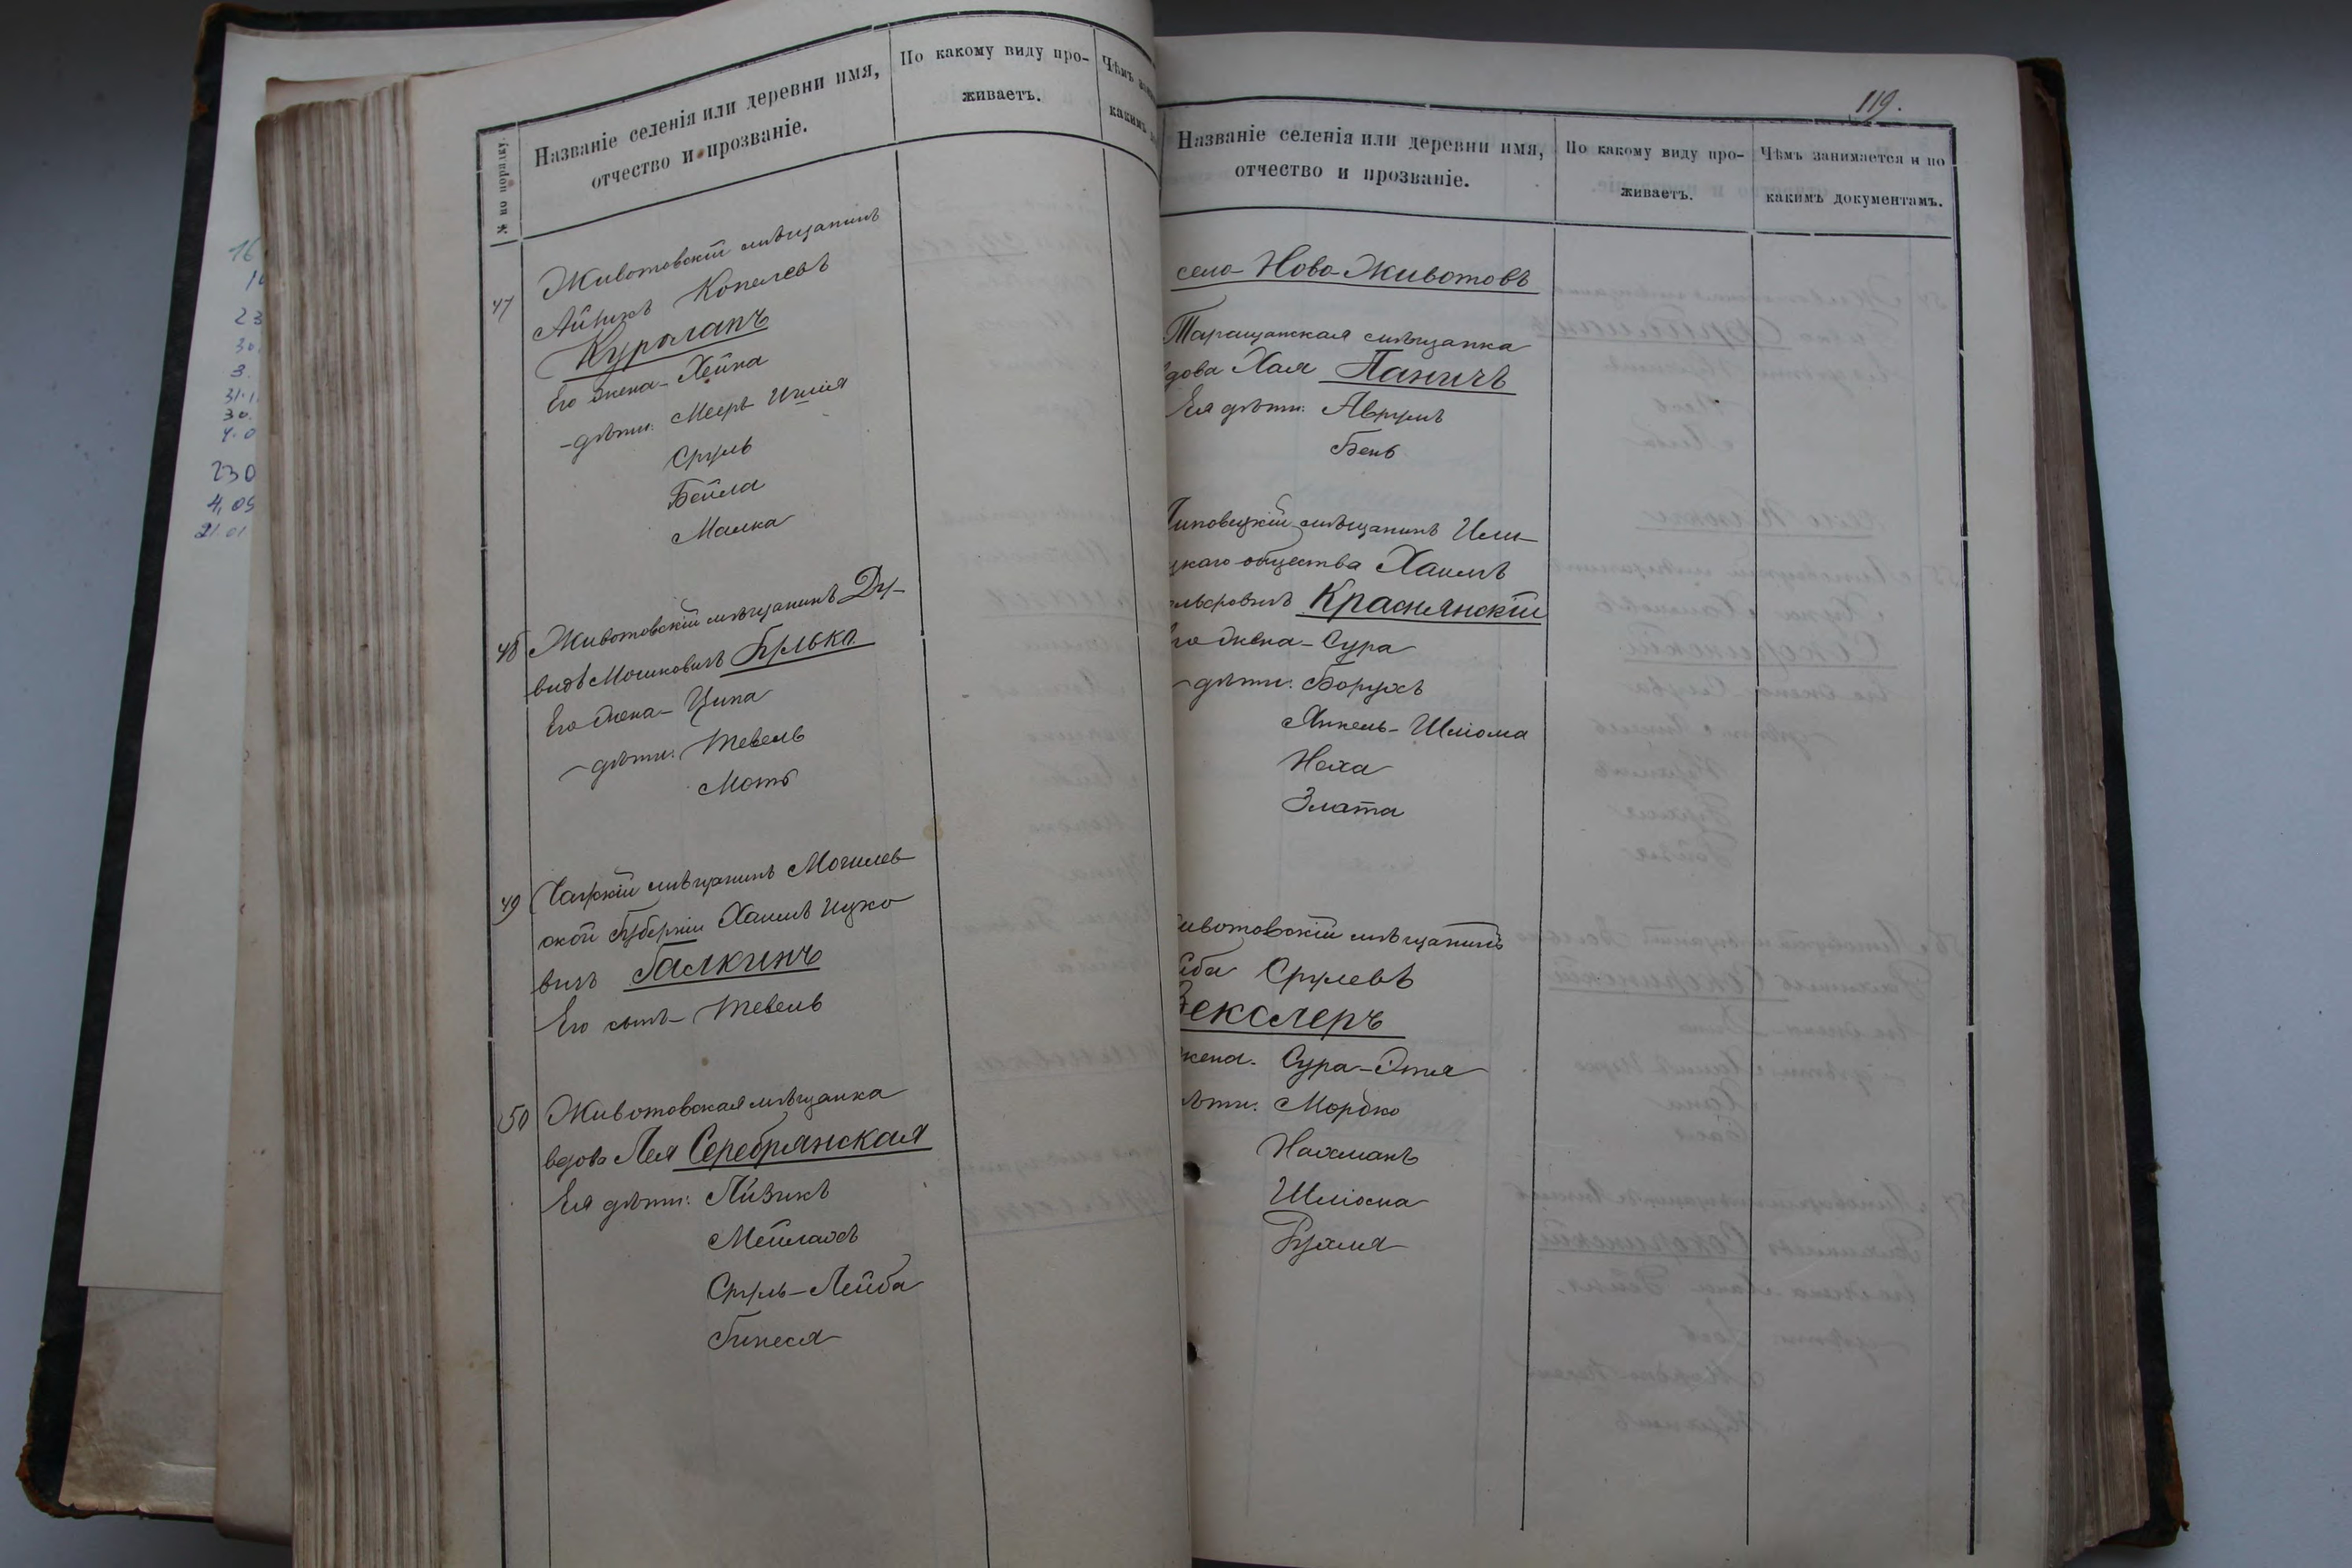 № по порядку
Названіе селенія или деревни имя,
отчество и прозваніе.
По какому виду про-
живаетъ.
Чѣмъ
какимъ
47 Животовскій мѣщанинъ
Айзикъ Копелевъ
Куполапъ
Его жена - Хейка
- дѣти: Мееръ
Сруль
Бейла
Малка
48 Животовскій мѣщанинъ Ду-
видъ Мошковичъ Булька
Его жена - Ципа
- дѣти: Тевель
Мотъ
49 мѣщанинъ Могилев-
ской Губерніи Хаимъ Ицко
вичъ Галкинъ
Его сынъ - Тевель
50 Животовская мѣщанка
вдова Лея Серебрянская
Ея дѣти: Айзикъ
Мейлахъ
Сруль-Лейба
Гинеся
119.
Названіе селенія или деревни имя,
отчество и прозваніе.
По какому виду про-
живаетъ.
Чѣмъ занимается и по
какимъ документамъ.
село Ново-Животовъ
Таращанская мѣщанка
дова Хая Паничъ
Ея дѣти: Аврумъ
Бень
Липовецкій мѣщанинъ Или-
цкаго общества Хаимъ
Краснянскій
го жена - Сура
- дѣти: Борухъ
Янкель-Шліома
Неха
Злата
ивотовскій мѣщанинъ
йба Срулевъ
екслеръ
жена. Сура-Этя
ѣти. Мордко
Нахманъ
Шліома
Рухля
16
23
30.
3.
31.1
30.
4.0
230
4,09
21.01